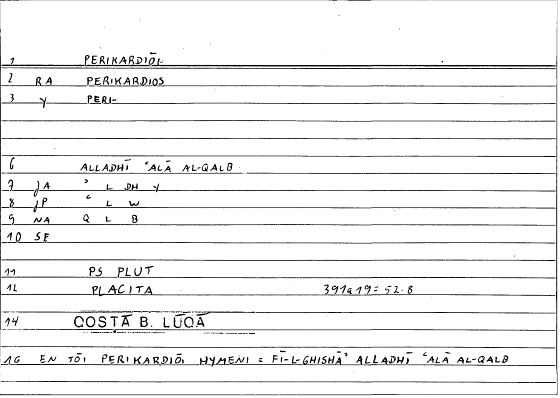 1 PERIKARDIŌI
2 RA PERIKARDIOS
3 Y PERI-
6 ALLADHĪ ʿALĀ AL-QALB
7 JA ʾ L DH Y
8 JP ʿ L W
9 NA Q L B
10 SE
11 PS PLUT
12 PLACITA 391a19=52.8
14 QOSṬĀ B. LŪQĀ
16 EN TŌI PERIKARDIŌI HYMENI = FĪ-L-GHISHĀʾ ALLADHĪ ʿALĀ AL-QALB